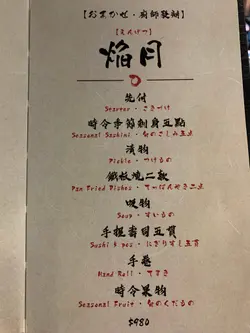 【おまかせ・廚師發辦】
【えんげつ】
焔月
先付
Starter・さきづけ
時令季節刺身五點
Seasonal Sashimi・旬のさしみ五点
漬物
Pickle・つけもの
鐵板燒二款
Pan Fried Dishes・てっぱんやき二点
吸物
Soup・すいもの
手握壽司五貫
Sushi 5 pcs・にぎりすし五貫
手卷
Hand Roll・てまき
時令菓物
Seasonal Fruit・旬のくだもの
$980